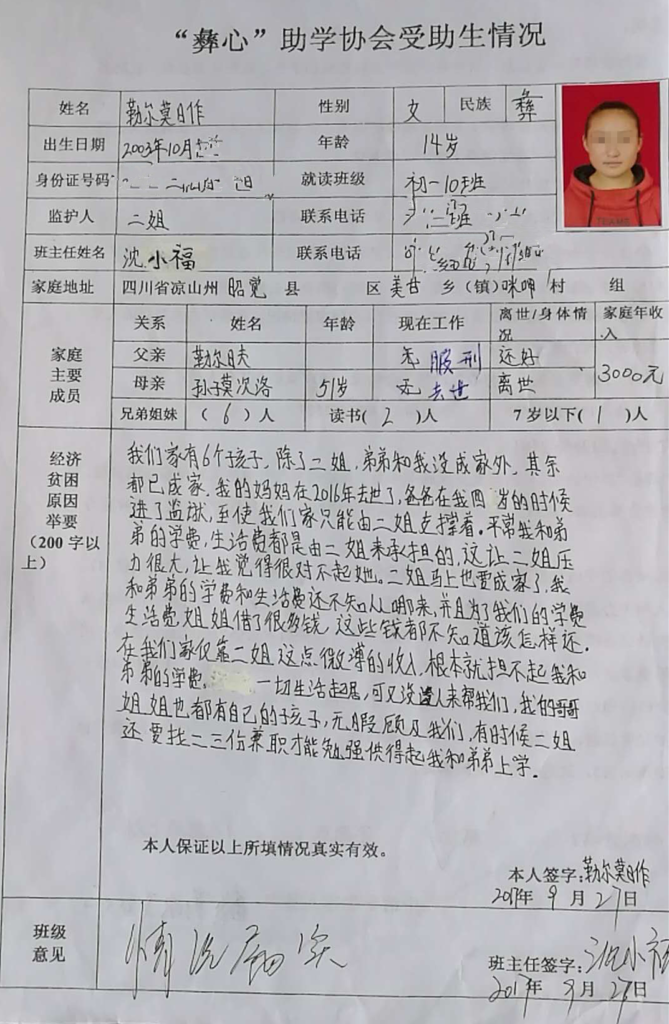 “彝心”助学协会受助生情况
姓名 勒尔莫日作 性别 女 民族 彝
出生日期 2003年10月 年龄 14岁
身份证号码 就读班级 初一10班
监护人 二姐 联系电话
班主任姓名 沈小福 联系电话
家庭地址 四川省凉山州 昭觉 县 区 美甘 乡（镇）咪呷 村 组
家庭主要成员 关系 姓名 年龄 现在工作 离世/身体情况 家庭年收入
父亲 勒尔日夫 无 服刑 还好 3000元
母亲 孙子莫次洛 51岁 去世 离世
兄弟姐妹 （6）人 读书（2）人 7岁以下（1）人
经济
贫困
原因
举要
（200字以
上）
我们家有6个孩子，除了二姐，弟弟和我没成家外，其余
都已成家，我的妈妈在2016年去世了，爸爸在我四岁的时候
进了监狱，至使我们家只能由二姐支撑着。平常我和弟
弟的学费，生活费都是由二姐来承担的，这让二姐压
力很大，让我觉得很对不起她。二姐马上也要成家了，我
和弟弟的学费和生活费还不知从哪来，并且为了我们的学费
生活费，姐姐借了很多钱，这些钱都不知道该怎样还。
在我们家仅靠二姐这点微薄的收入，根本就担不起我和
弟弟的学费，一切生活起居，可又没人来帮我们，我的哥哥
姐姐也都有自己的孩子，无暇顾及我们，有时候二姐
还要找二三份兼职才能勉强供得起我和弟弟上学。
本人保证以上所填情况真实有效。
本人签字：勒尔莫日作
2017年 9 月 27日
班级
意见
情况属实
班主任签字：沈小福
2017年 9月 27日